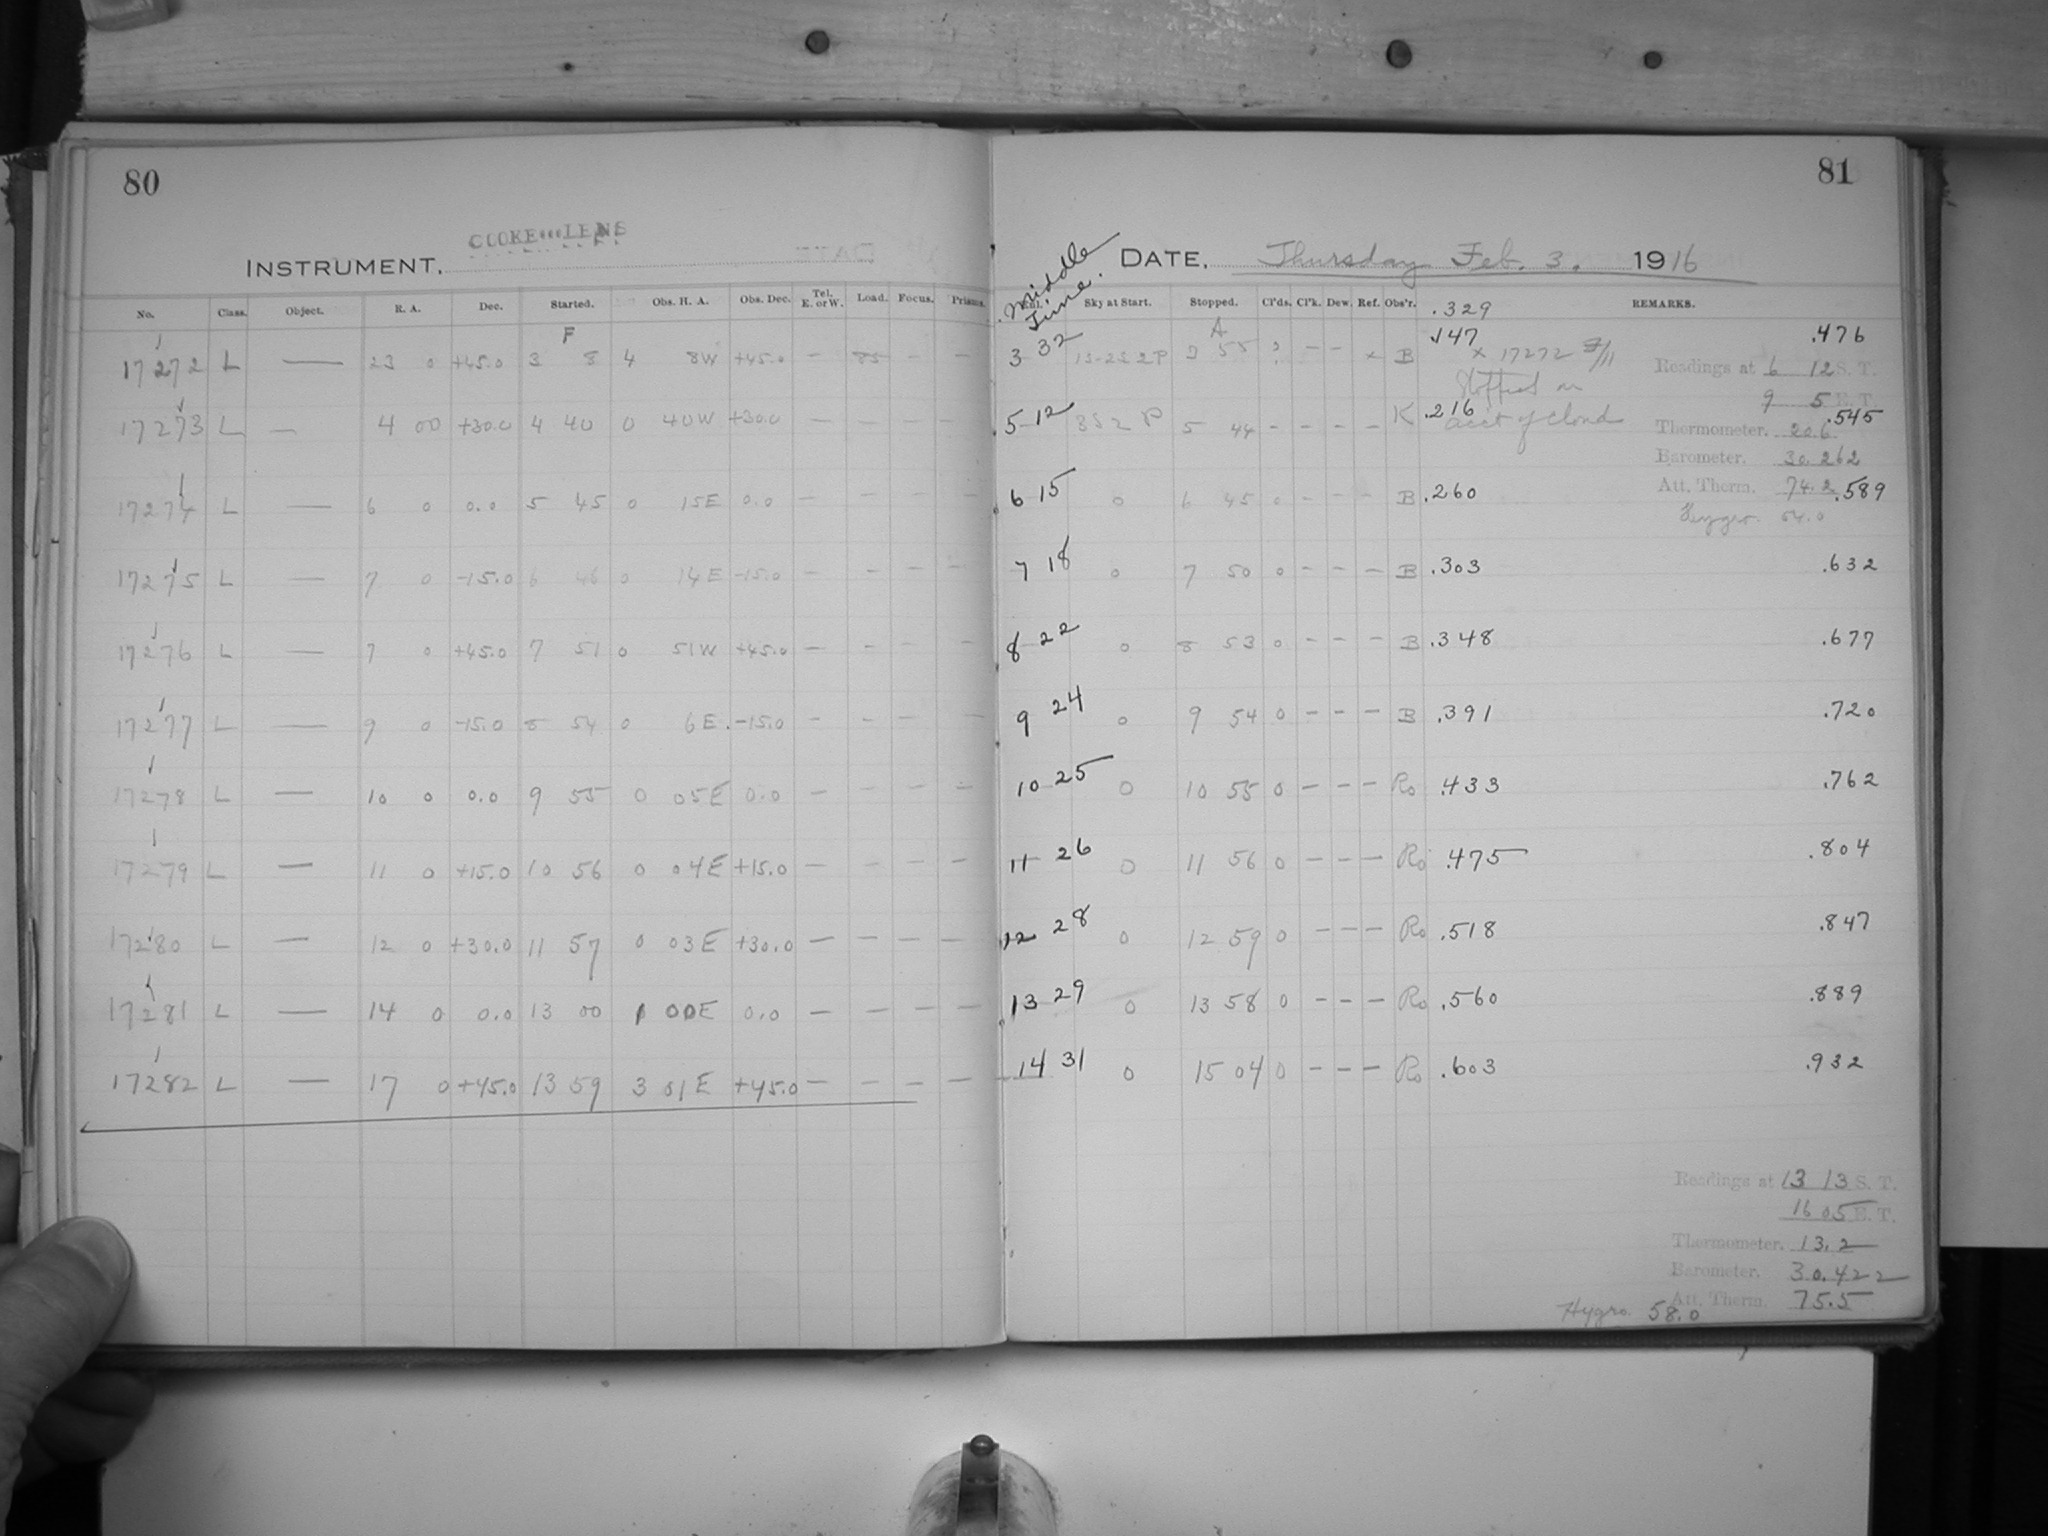 80
81
COOKE LENS
INSTRUMENT.
DATE. Thursday Feb. 3. 1916
No. Class. Object. R. A. Dec. Started. Obs. H. A. Obs. Dec. Tel. E. or W. Load. Focus. Prisms. Middle Time. Sky at Start. Stopped. Cl'ds. Cl'k. Dew. Ref. Obs'r. .329 REMARKS.
F A
17272 L — 23 0 +45.0 3 8 4 8W +45.0 — 85 — — 3 32 3 55 ? — — x B .147 x 17272 .476
Stopped on
acc't of cloud
Readings at 6 12 S. T.
9 5 E. T.
17273 L — 4 00 +30.0 4 40 0 40W +30.0 — — — — 5 12 3S2 P 5 44 - - - - K .216 .545
Thermometer. 20.6
Barometer. 30.262
17274 L — 6 0 0.0 5 45 0 15E 0.0 — — — — 6 15 0 6 45 0 - - - B .260 .589
Att. Therm. 74.2
Hygro. 54.0
17275 L — 7 0 -15.0 6 46 0 14E -15.0 — — — — 7 18 0 7 50 0 - - - B .303 .632
17276 L — 7 0 +45.0 7 51 0 51W +45.0 — — — — 8 22 0 8 53 0 - - - B .348 .677
17277 L — 9 0 -15.0 8 54 0 6E -15.0 — — — — 9 24 0 9 54 0 - - - B .391 .720
17278 L — 10 0 0.0 9 55 0 05E 0.0 — — — — 10 25 0 10 55 0 - - - Ro .433 .762
17279 L — 11 0 +15.0 10 56 0 04E +15.0 — — — — 11 26 0 11 56 0 - - - Ro .475 .804
17280 L — 12 0 +30.0 11 57 0 03E +30.0 — — — — 12 28 0 12 59 0 - - - Ro .518 .847
17281 L — 14 0 0.0 13 00 1 00E 0.0 — — — — 13 29 0 13 58 0 - - - Ro .560 .889
17282 L — 17 0 +45.0 13 59 3 01E +45.0 — — — — 14 31 0 15 04 0 - - - Ro .603 .932
Readings at 13 13 S. T.
16 05 E. T.
Thermometer. 13.2
Barometer. 30.422
Att. Therm. 75.5
Hygro. 58.0